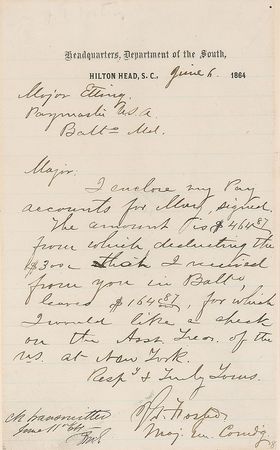 Headquarters, Department of the South,
HILTON HEAD, S. C., June 6. 1864
Major Etting
Paymaster U.S.A.
Balto Md.
Major.
I enclose my Pay
accounts for May, signed.
The amount is $464 87
from which deducting the
$300 I received
from you in Balto,
leaves $164 87, for which
I would like a check
on the Asst Treas. of the
U.S. at New York.
Respy & Truly Yours.
J. G. Foster
Maj. Gen. Comdg
Ck transmitted
June 11th 64